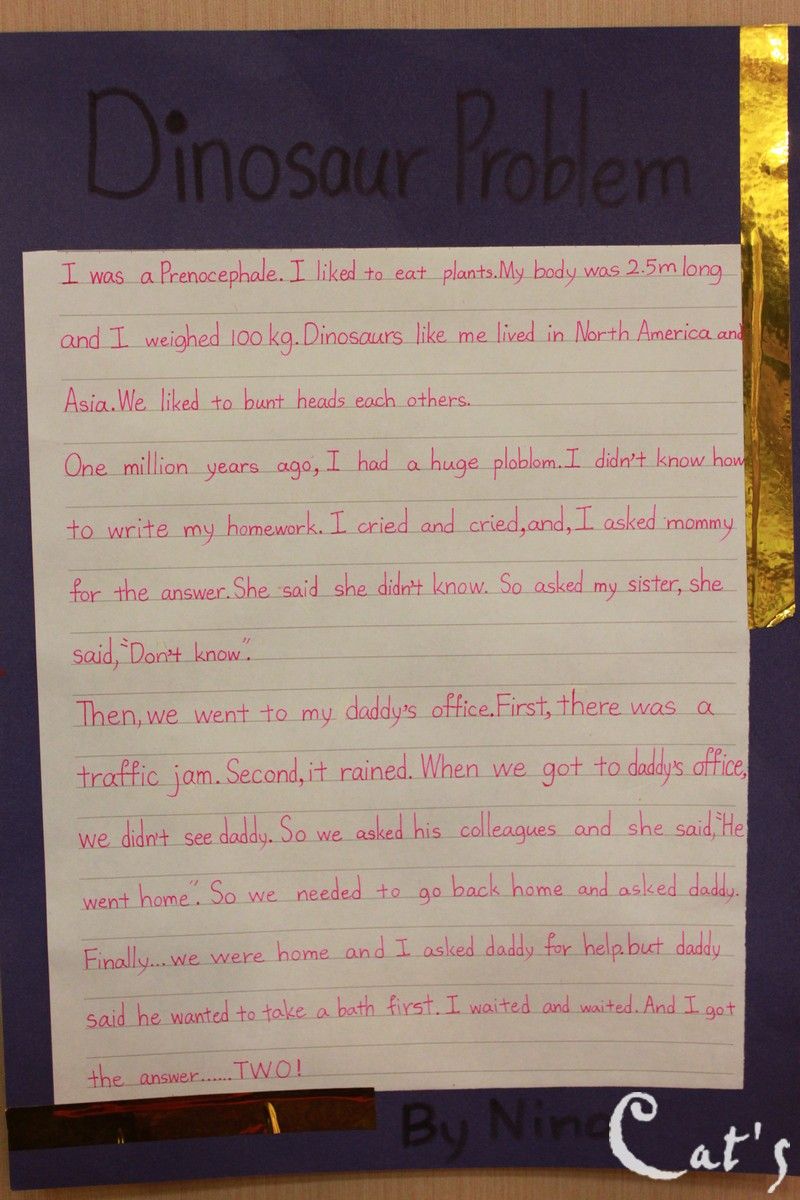 Dinosaur Problem
I was a Prenocephale. I liked to eat plants. My body was 2.5m long
and I weighed 100 kg. Dinosaurs like me lived in North America and
Asia. We liked to bunt heads each others.
One million years ago, I had a huge ploblom. I didn't know how
to write my homework. I cried and cried, and, I asked mommy
for the answer. She said she didn't know. So asked my sister, she
said, "Don't know".
Then, we went to my daddy's office. First, there was a
traffic jam. Second, it rained. When we got to daddy's office,
we didn't see daddy. So we asked his colleagues and she said, "He
went home". So we needed to go back home and asked daddy.
Finally... we were home and I asked daddy for help. but daddy
said he wanted to take a bath first. I waited and waited. And I got
the answer...... TWO!
By Nina
Cat's